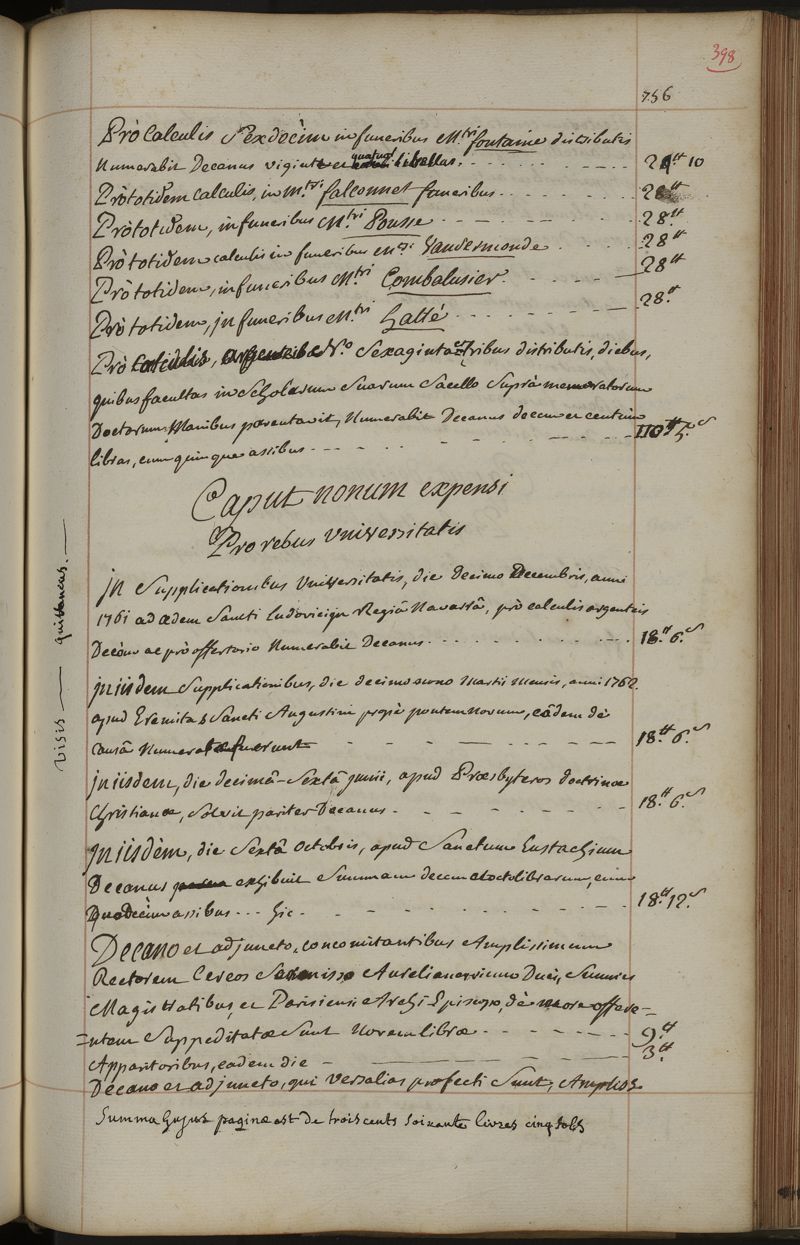 398
756
Prò Calculis Sexdocim in funeribus M.tri fontaine distributis
Numerabit Decanus viginti et quatuor libellas. 24.tt 10
Prò totidem calculis, in m.tri falconnet funeribus 28tt
Prò totidem, in funeribus M.tri Pousse 28.tt
Prò totidem calculis in funeribus M.tri Vandermonde 28tt
Prò totidem, in funeribus M.tri Combalusier. 28tt
Prò totidem, jn funeribus M.tri Gallé 28.tt
Prò calculis, argenteis N.o Sexaginta et tribus distributis, diebus,
quibus facultas in Scholarum Suarum Sacello Suprà memoratorum
Doctorum Manibus parentavit, Numerabit Decanus decem et centum
libras, cum quinque assibus 110tt 5.s
Caput nonum expensi
Pro rebus Universitatis
jn Supplicationibus Universitatis, die decimo Decembris, anni
1761 ad aedem Sancti Ludovici in Regiâ Navarrâ, prò calculis argenteis
Decano ac prò offertorio Numerabit Decanus 18.tt 6.s
jn iisdem Supplicationibus, die decimo nono Martii Mensis, anni 1762.
apud Eremitas Sancti Augustini propè pontem Novum, eâdem de
causâ Numerata fuerunt 18.tt 6.s
jn iisdem, die decimâ-Sextâ junii, apud Praesbyteros doctrinae
Christianae, Solvit pariter Decanus 18.tt 6.s
jn iisdèm, die Sextâ octobris, apud Sanctum Eustachium
Decanus exhibuit Summam decem et octo librarum, cum
Duodecim assibus ... hic 18.tt 12.s
Decano et adjuncto, concomitantibus Amplissimum
Rectorem Cereos Serenisso Aurelianensium Duci, Summis
Magistratibus, et Parisiensi Archi-Episcopo, dè more offere-
=ntem Suppeditatae Sunt Novem librae 9.tt
Apparitoribus, eadem die 3.tt
Decano et adjuncto, qui Versalias profecti Sunt, Ampliss
Summa hujus paginae est de trois cents soixante livres cinq sols
Visis — quittancus. —